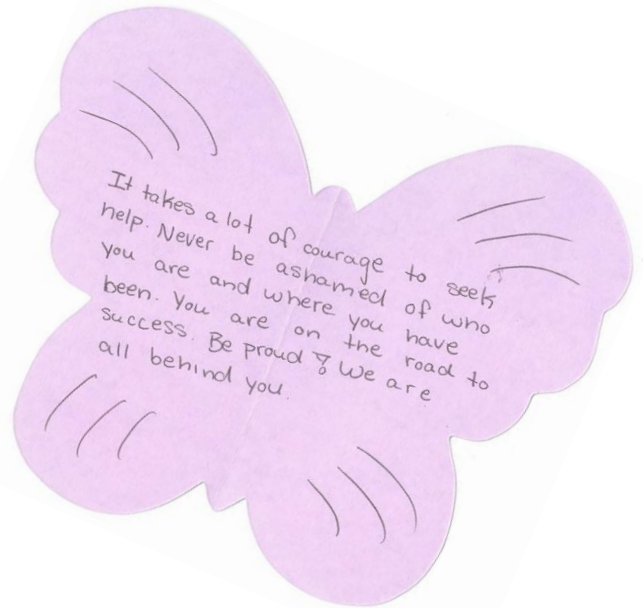 It takes a lot of courage to seek
help. Never be ashamed of who
you are and where you have
been. You are on the road to
success. Be proud! We are
all behind you.